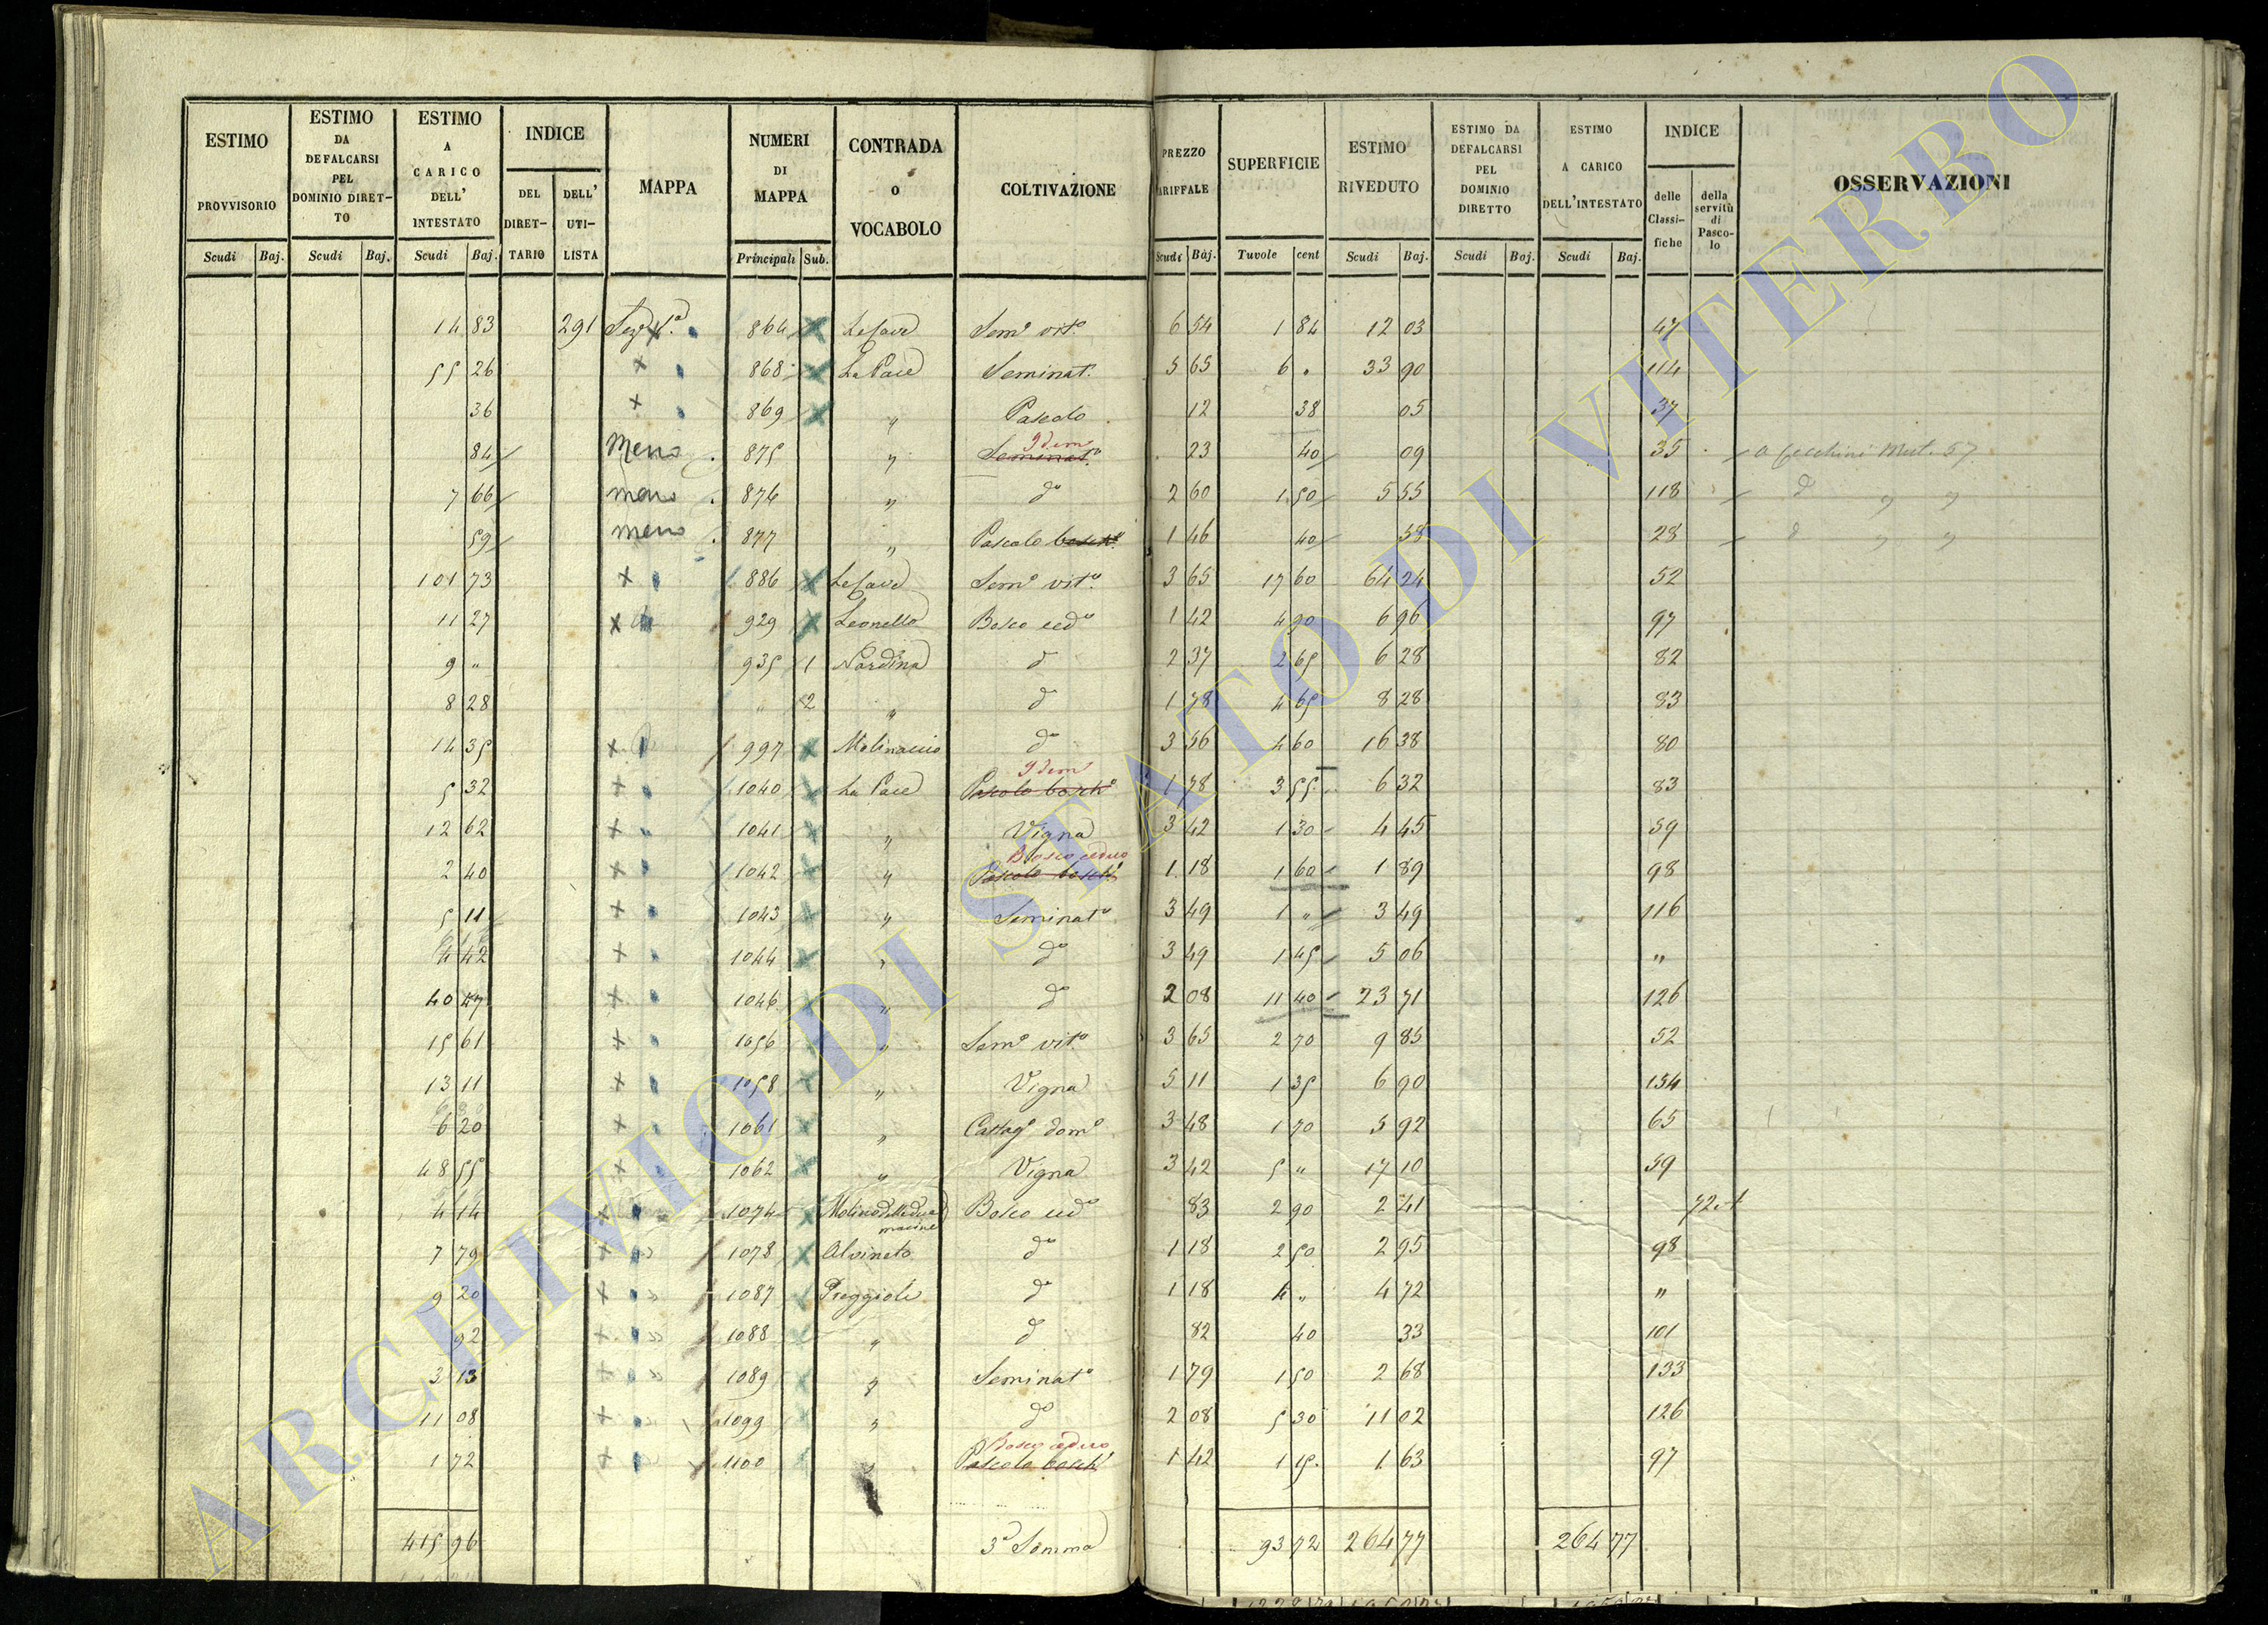 ESTIMO PROVVISORIO Scudi Baj.
ESTIMO DA DEFALCARSI PEL DOMINIO DIRETTO Scudi Baj.
ESTIMO A CARICO DELL' INTESTATO Scudi Baj.
INDICE DEL DIRETTARIO DELL' UTILISTA
MAPPA
NUMERI DI MAPPA Principali Sub.
CONTRADA O VOCABOLO
COLTIVAZIONE
PREZZO TARIFFALE Scudi Baj.
SUPERFICIE Tavole cent
ESTIMO RIVEDUTO Scudi Baj.
ESTIMO DA DEFALCARSI PEL DOMINIO DIRETTO Scudi Baj.
ESTIMO A CARICO DELL'INTESTATO Scudi Baj.
INDICE delle Classifiche della servitù di Pascolo
OSSERVAZIONI
14 83 291 864 Le Cave Semo vito 6 54 1 84 12 03 47
55 26 x 868 La Pace Seminat. 5 65 6 . 33 90 114
36 x 869 " Pascolo 12 38 05 37
84 Meno 875 " Seminato Idem 23 40 09 35 a Cecchini Mut. 57
7 66 meno 876 " do 2 60 1 50 5 55 118 d " "
59 meno 877 " Pascolo bosch 1 46 40 58 28 d " "
101 73 x 886 Le Cave Semo vito 3 65 17 60 64 24 52
11 27 x 929 Leonello Bosco cedo 1 42 4 90 6 96 97
9 " 935 1 Nardina d 2 37 2 65 6 28 82
8 28 " 2 " d 1 78 4 65 8 28 83
14 35 x 997 Molinaccio do 3 56 4 60 16 38 80
5 32 x 1040 La Pace Pascolo bosch Idem 1 78 3 55 6 32 83
12 62 x 1041 " Vigna 3 42 1 30 4 45 59
2 40 x 1042 " Pascolo bosch Bosco ceduo 1 18 1 60 1 89 98
5 11 x 1043 " Seminato 3 49 1 " 3 49 116
4 42 x 1044 " do 3 49 1 45 5 06 "
40 47 x 1046 " do 2 08 11 40 23 71 126
15 61 x 1056 " Semo vito 3 65 2 70 9 85 52
13 11 x 1058 " Vigna 5 11 1 35 6 90 154
6 20 x 1061 " Castago domo 3 48 1 70 5 92 65
48 55 x 1062 " Vigna 3 42 5 " 17 10 59
4 14 x 1074 Molino delle due macine Bosco cedo 83 2 90 2 41 72
7 79 x 1078 Alvineto do 1 18 2 50 2 95 98
9 20 x 1087 Preggiole do 1 18 4 " 4 72 "
92 x 1088 " d 82 40 33 101
3 13 x 1089 " Seminato 1 79 1 50 2 68 133
11 08 x 1099 " do 2 08 5 30 11 02 126
1 72 x 1100 " Pascolo bosch Bosco ceduo 1 42 1 15 1 63 97
415 96 3a Somma 93 72 264 77 264 77
ARCHIVIO DI STATO DI VITERBO